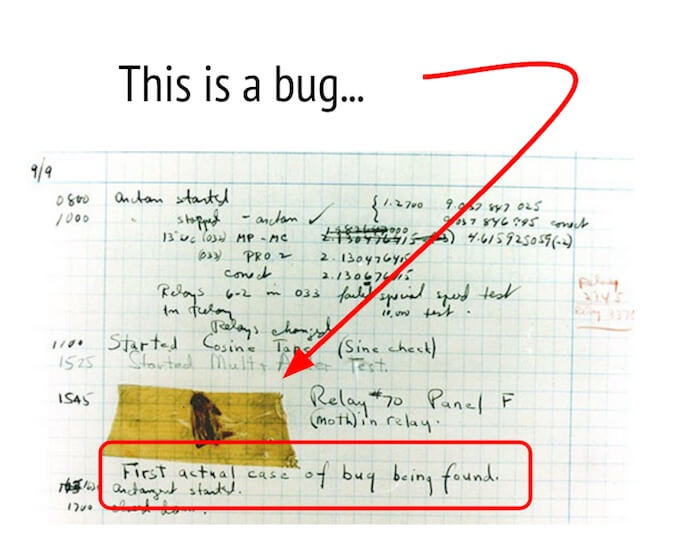 This is a bug...
9/9
0800 antan started
1000 " stopped - antan ✓
{ 1.2700 9.037 847 025
9.037 846 995 correct
13" uc (032) MP - MC 2.130476415 4.615925059(-2)
(033) PRO 2 2.130476415
correct 2.130676415
Relays 6-2 in 033 failed special speed test
In Relay 10,000 test.
Relay
3145
Relay 3370
Relays changed
1100 Started Cosine Tape (Sine check)
1525 Started Mult + Adder Test.
1545 Relay #70 Panel F
(moth) in relay.
First actual case of bug being found.
antangent started.
1700 closed down.